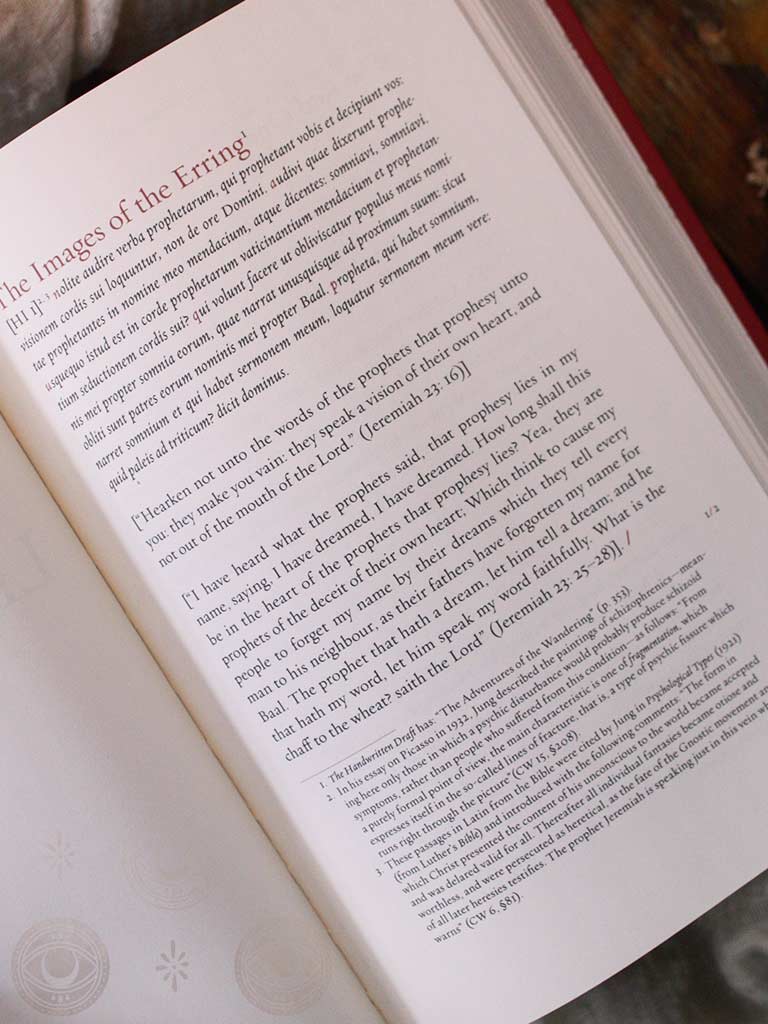 The Images of the Erring¹
[HI 1]²·³ nolite audire verba prophetarum, qui prophetant vobis et decipiunt vos:
visionem cordis sui loquuntur, non de ore Domini. audivi quae dixerunt prophe-
tae prophetantes in nomine meo mendacium, atque dicentes: somniavi, somniavi.
usquequo istud est in corde prophetarum vaticinantium mendacium et prophetan-
tium seductionem cordis sui? qui volunt facere ut obliviscatur populus meus nomi-
nis mei propter somnia eorum, quae narrat unusquisque ad proximum suum: sicut
obliti sunt patres eorum nominis mei propter Baal. propheta, qui habet somnium,
narret somnium et qui habet sermonem meum, loquatur sermonem meum vere:
quid paleis ad triticum? dicit dominus.
["Hearken not unto the words of the prophets that prophesy unto
you: they make you vain: they speak a vision of their own heart, and
not out of the mouth of the Lord." (Jeremiah 23: 16)]
["I have heard what the prophets said, that prophesy lies in my
name, saying, I have dreamed, I have dreamed. How long shall this
be in the heart of the prophets that prophesy lies? Yea, they are
prophets of the deceit of their own heart; Which think to cause my
people to forget my name by their dreams which they tell every
man to his neighbour, as their fathers have forgotten my name for
Baal. The prophet that hath a dream, let him tell a dream; and he
that hath my word, let him speak my word faithfully. What is the
chaff to the wheat? saith the Lord" (Jeremiah 23: 25–28)]. /
1/2
1. The Handwritten Draft has: "The Adventures of the Wandering" (p. 353).
2. In his essay on Picasso in 1932, Jung described the paintings of schizophrenics—mean-
ing here only those in which a psychic disturbance would probably produce schizoid
symptoms, rather than people who suffered from this condition—as follows: "From
a purely formal point of view, the main characteristic is one of fragmentation, which
expresses itself in the so-called lines of fracture, that is, a type of psychic fissure which
runs right through the picture" (CW 15, §208).
3. These passages in Latin from the Bible were cited by Jung in Psychological Types (1921)
(from Luther's Bible) and introduced with the following comments: "The form in
which Christ presented the content of his unconscious to the world became accepted
and was delared valid for all. Thereafter all individual fantasies became otiose and
worthless, and were persecuted as heretical, as the fate of the Gnostic movement an
of all later heresies testifies. The prophet Jeremiah is speaking just in this vein wh
warns" (CW 6, §81).